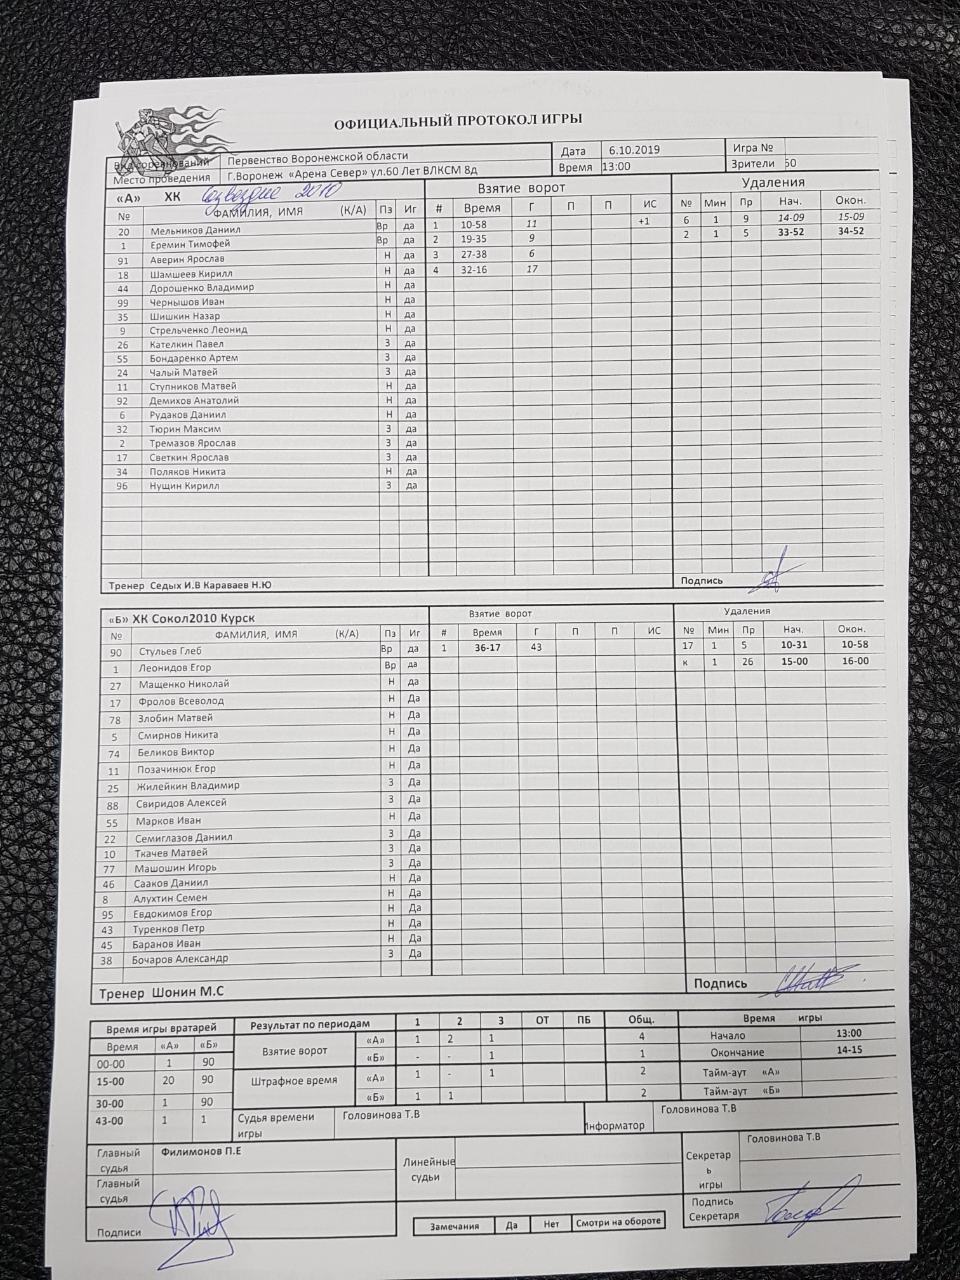 ОФИЦИАЛЬНЫЙ ПРОТОКОЛ ИГРЫ
Вид соревнований Первенство Воронежской области Дата 6.10.2019 Игра №
Место проведения Г.Воронеж «Арена Север» ул.60 Лет ВЛКСМ 8д Время 13:00 Зрители 50
«А» ХК Созвездие 2010 Взятие ворот Удаления
№ ФАМИЛИЯ, ИМЯ (К/А) Пз Иг # Время Г П П ИС № Мин Пр Нач. Окон.
20 Мельников Даниил Вр да 1 10-58 11 +1 6 1 9 14-09 15-09
1 Еремин Тимофей Вр да 2 19-35 9 2 1 5 33-52 34-52
91 Аверин Ярослав Н да 3 27-38 6
18 Шамшеев Кирилл Н да 4 32-16 17
44 Дорошенко Владимир Н да
99 Чернышов Иван Н да
35 Шишкин Назар Н да
9 Стрельченко Леонид Н да
26 Кателкин Павел З да
55 Бондаренко Артем З да
24 Чалый Матвей З да
11 Ступников Матвей Н да
92 Демихов Анатолий Н да
6 Рудаков Даниил Н да
32 Тюрин Максим З да
2 Тремазов Ярослав З да
17 Светкин Ярослав З да
34 Поляков Никита Н да
96 Нущин Кирилл З да
Тренер Седых И.В Караваев Н.Ю Подпись
«Б» ХК Сокол2010 Курск Взятие ворот Удаления
№ ФАМИЛИЯ, ИМЯ (К/А) Пз Иг # Время Г П П ИС № Мин Пр Нач. Окон.
90 Стульев Глеб Вр да 1 36-17 43 17 1 5 10-31 10-58
1 Леонидов Егор Вр да к 1 26 15-00 16-00
27 Мащенко Николай Н да
17 Фролов Всеволод Н Да
78 Злобин Матвей Н Да
5 Смирнов Никита Н Да
74 Беликов Виктор Н Да
11 Позачинюк Егор Н Да
25 Жилейкин Владимир З Да
88 Свиридов Алексей З Да
55 Марков Иван Н Да
22 Семиглазов Даниил З Да
10 Ткачев Матвей З Да
77 Машошин Игорь З Да
46 Сааков Даниил Н Да
8 Алухтин Семен Н Да
95 Евдокимов Егор Н Да
43 Туренков Петр Н Да
45 Баранов Иван Н Да
38 Бочаров Александр З Да
Тренер Шонин М.С Подпись
Время игры вратарей Результат по периодам 1 2 3 ОТ ПБ Общ. Время игры
Время «А» «Б» Взятие ворот «А» 1 2 1 4 Начало 13:00
00-00 1 90 «Б» - - 1 1 Окончание 14-15
15-00 20 90 Штрафное время «А» 1 - 1 2 Тайм-аут «А»
30-00 1 90 «Б» 1 1 2 Тайм-аут «Б»
43-00 1 1 Судья времени игры Головинова Т.В Информатор Головинова Т.В
Главный судья Филимонов П.Е Линейные судьи Секретарь игры Головинова Т.В
Главный судья
Подписи Замечания Да Нет Смотри на обороте Подпись Секретаря